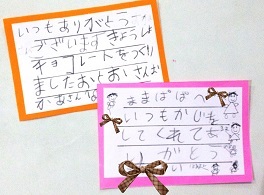 いつもありがとう
ございますきょうは
チョコレートをつくり
ましたおとおさんお
かあさん
ままぱぱへ
いつもかじを
してくれてあ
りがとう